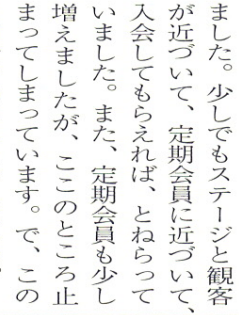 ました。少しでもステージと観客
が近づいて、定期会員に近づいて、
入会してもらえれば、とねらって
いました。また、定期会員も少し
増えましたが、ここのところ止
まってしまっています。で、この